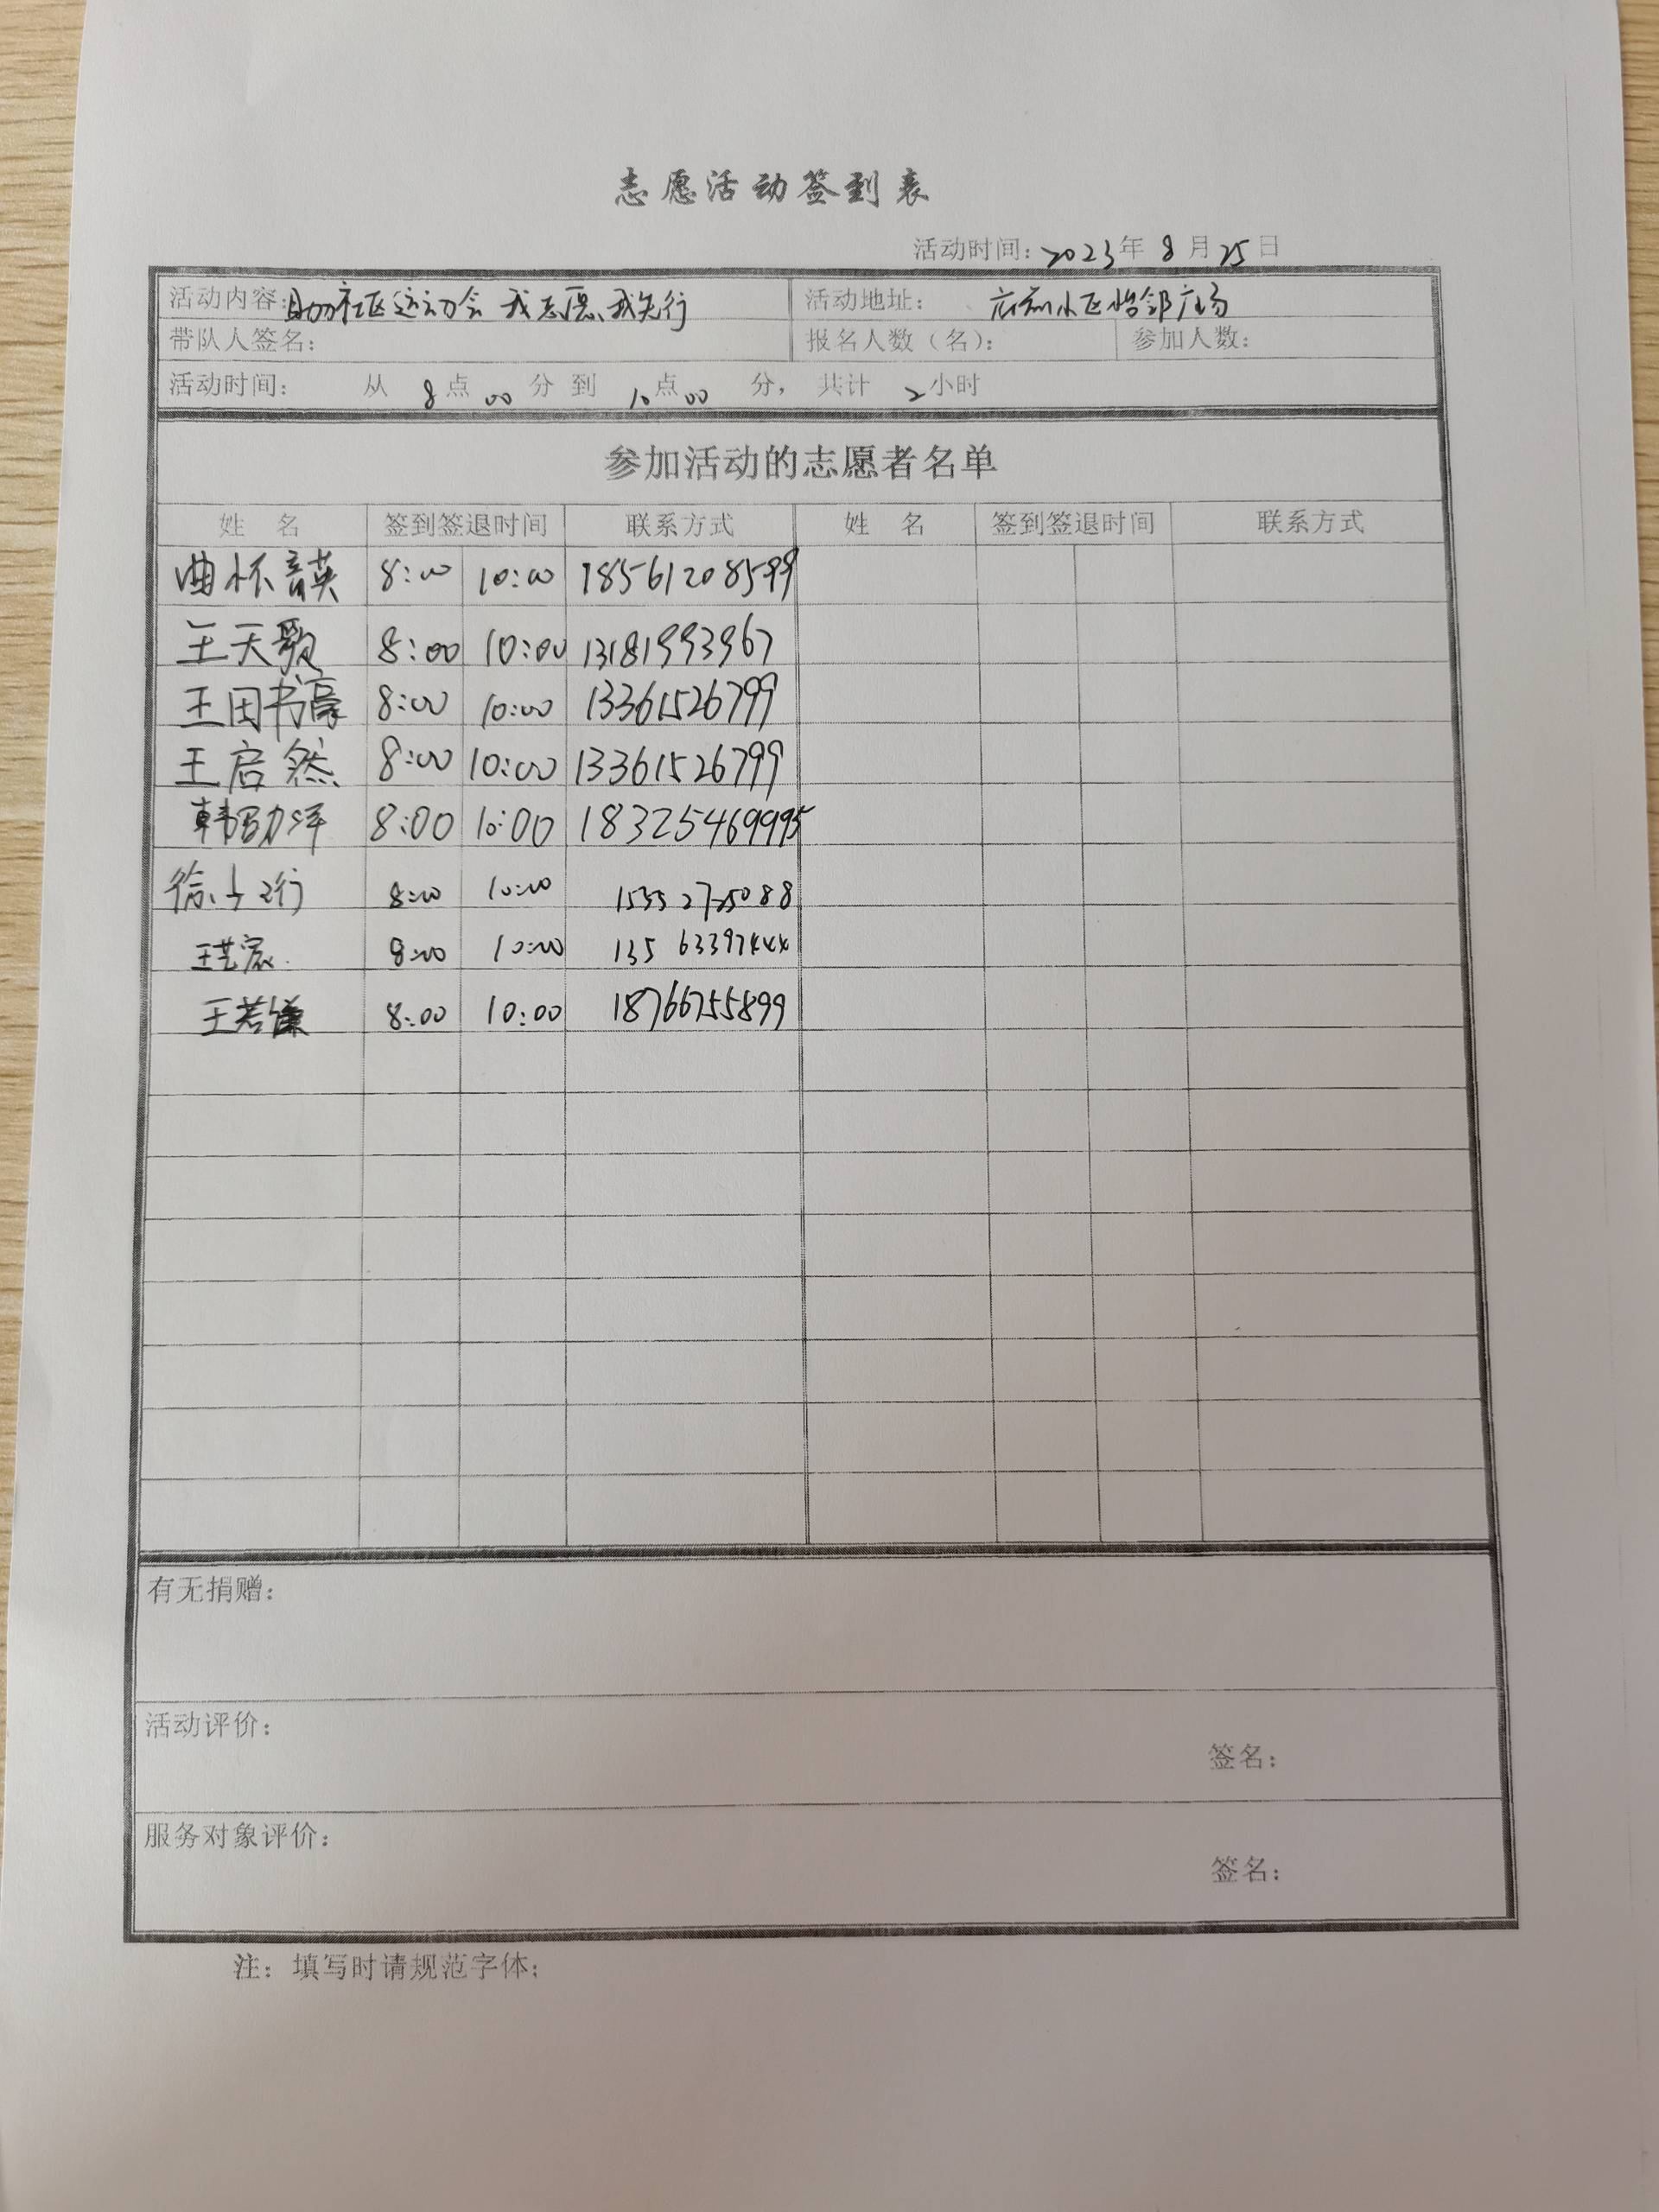 志愿活动签到表
活动时间：2023年 8月 25日
活动内容：助力社区运动会 我志愿、我先行 活动地址： 小区怡邻广场
带队人签名： 报名人数（名）： 参加人数：
活动时间： 从 8点 00 分 到 10点00 分， 共计 2小时
参加活动的志愿者名单
姓 名 签到签退时间 联系方式 姓 名 签到签退时间 联系方式
曲怀 8:00 10:00 18561208599
王天歌 8:00 10:00 13181993967
王田书豪 8:00 10:00 13361526799
王启然 8:00 10:00 13361526799
韩 8:00 10:00 18325469995
徐 8:00 10:00 15552725088
王艺宸 8:00 10:00 135 63397444
王若谦 8:00 10:00 18766755899
有无捐赠：
活动评价：
签名：
服务对象评价：
签名：
注： 填写时请规范字体；